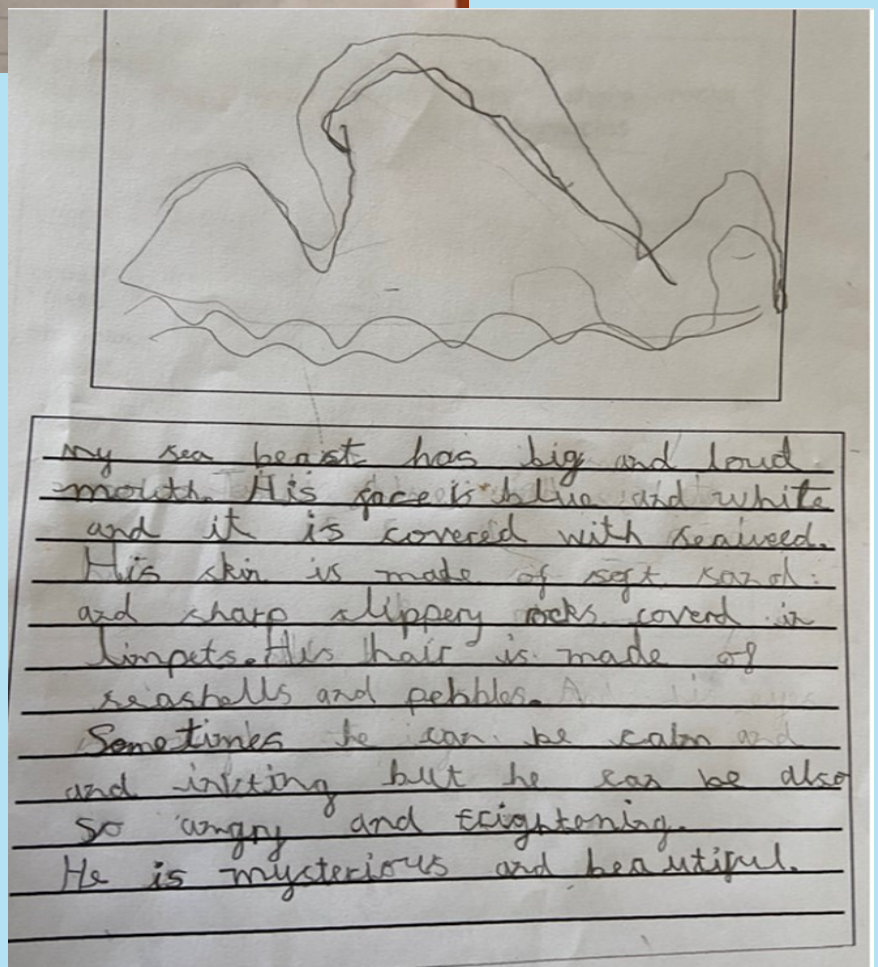 My sea beast has big and loud
mouth. His face is blue and white
and it is covered with seaweed.
His skin is made of soft sand
and sharp slippery rocks coverd in
limpets. His hair is made of
seashells and pebbles.
Sometimes he can be calm and
and inisting but he can be also
so angry and frightening.
He is mysterious and beautiful.